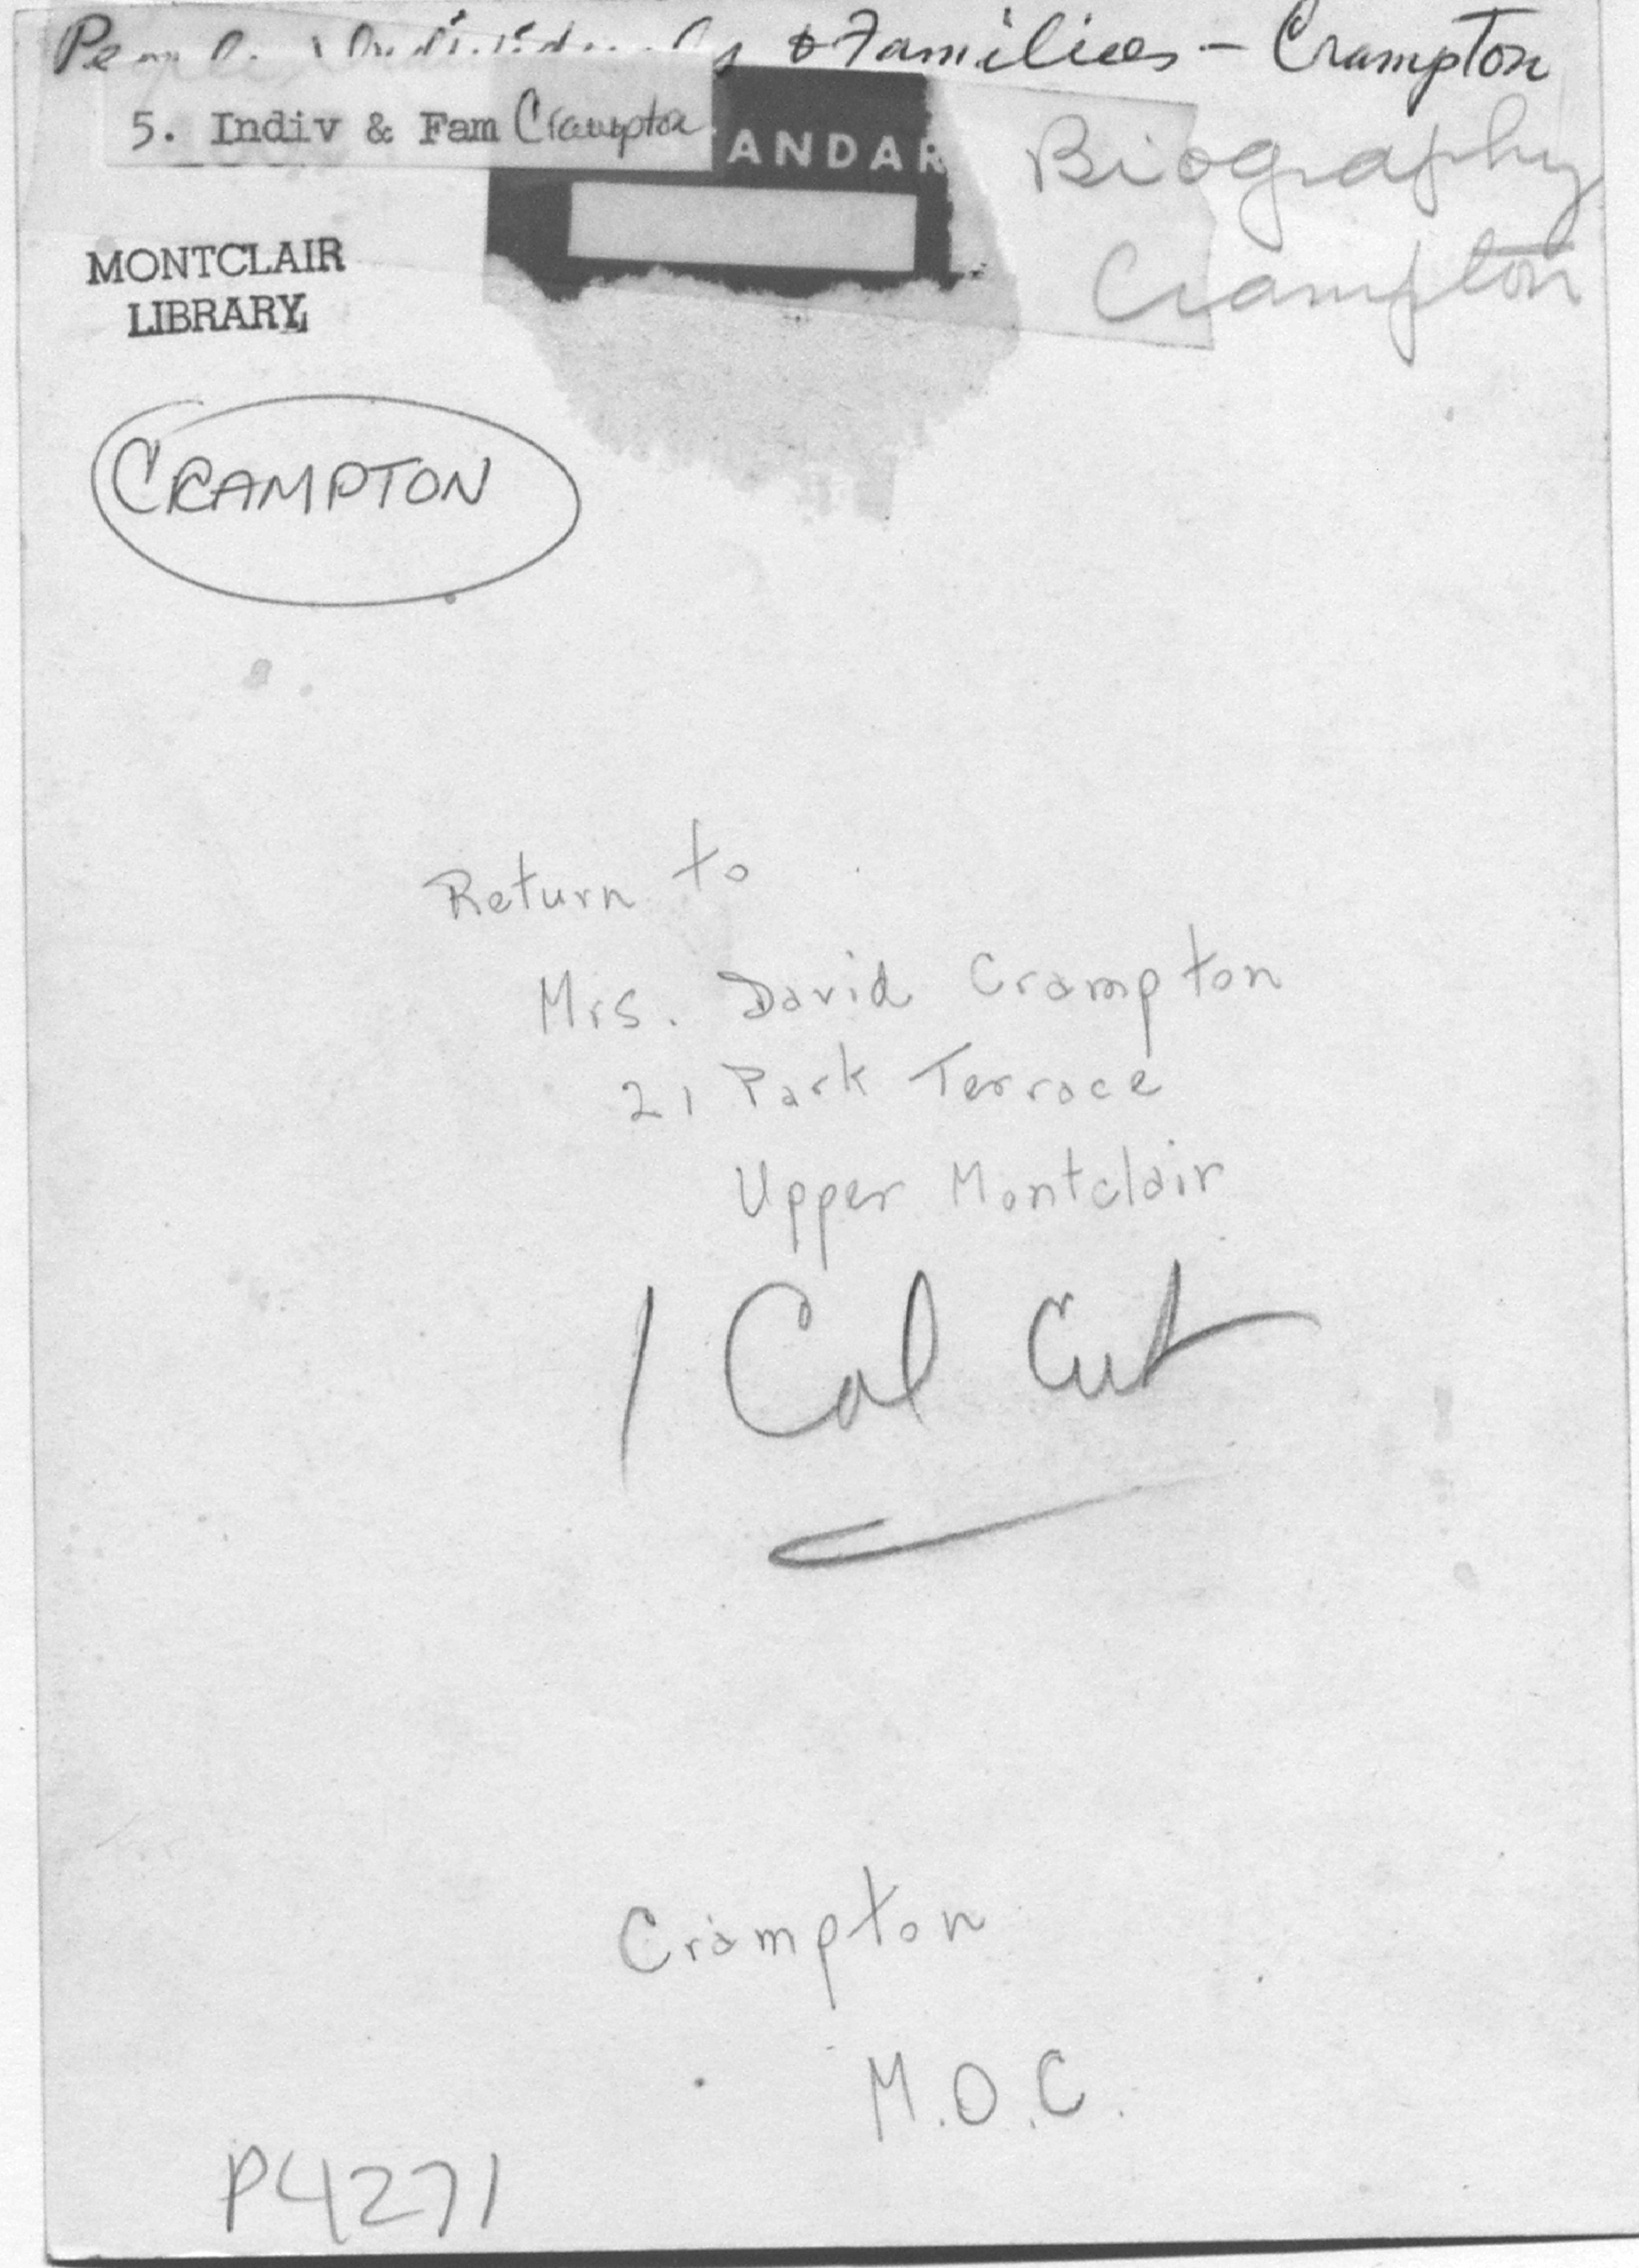 & Families - Crampton
5. Indiv & Fam Crampton
ANDAR
Biography
Crampton
MONTCLAIR
LIBRARY
CRAMPTON
Return to
Mrs. David Crampton
21 Park Terrace
Upper Montclair
1 Col Cut
Crampton
M.O.C.
P4271